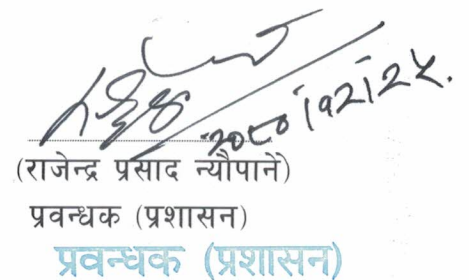 २०८०।१२।२५.
(राजेन्द्र प्रसाद न्यौपाने)
प्रवन्धक (प्रशासन)
प्रवन्धक (प्रशासन)